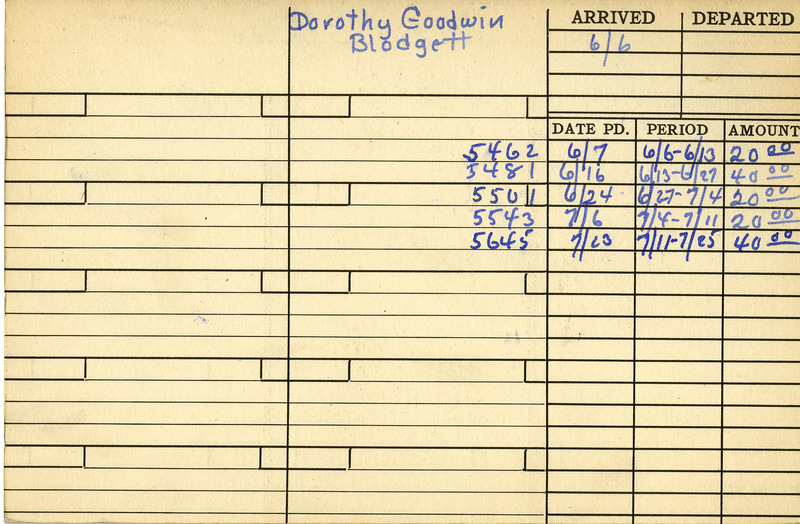 Dorothy Goodwin
Blodgett
ARRIVED DEPARTED
6/6
DATE PD. PERIOD AMOUNT
5462 6/7 6/6-6/13 20 00
5481 6/16 6/13-6/27 40 00
5501 6/24 6/27-7/4 20 00
5543 7/6 7/4-7/11 20 00
5645 7/23 7/11-7/25 40 00